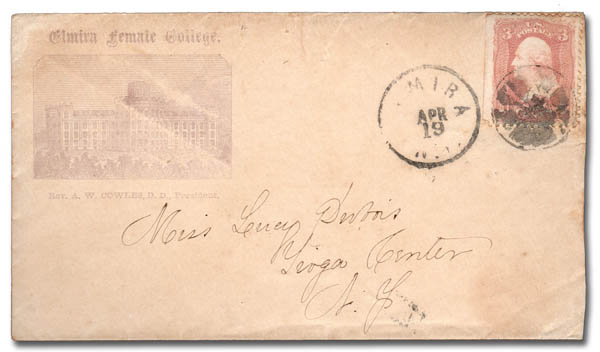 Elmira Female College.
Rev. A. W. COWLES, D. D., President.
MIRA
APR
19
N.Y.
U.S.
3 POSTAGE 3
Miss Lucy Dubois
Tioga Center
N. Y.